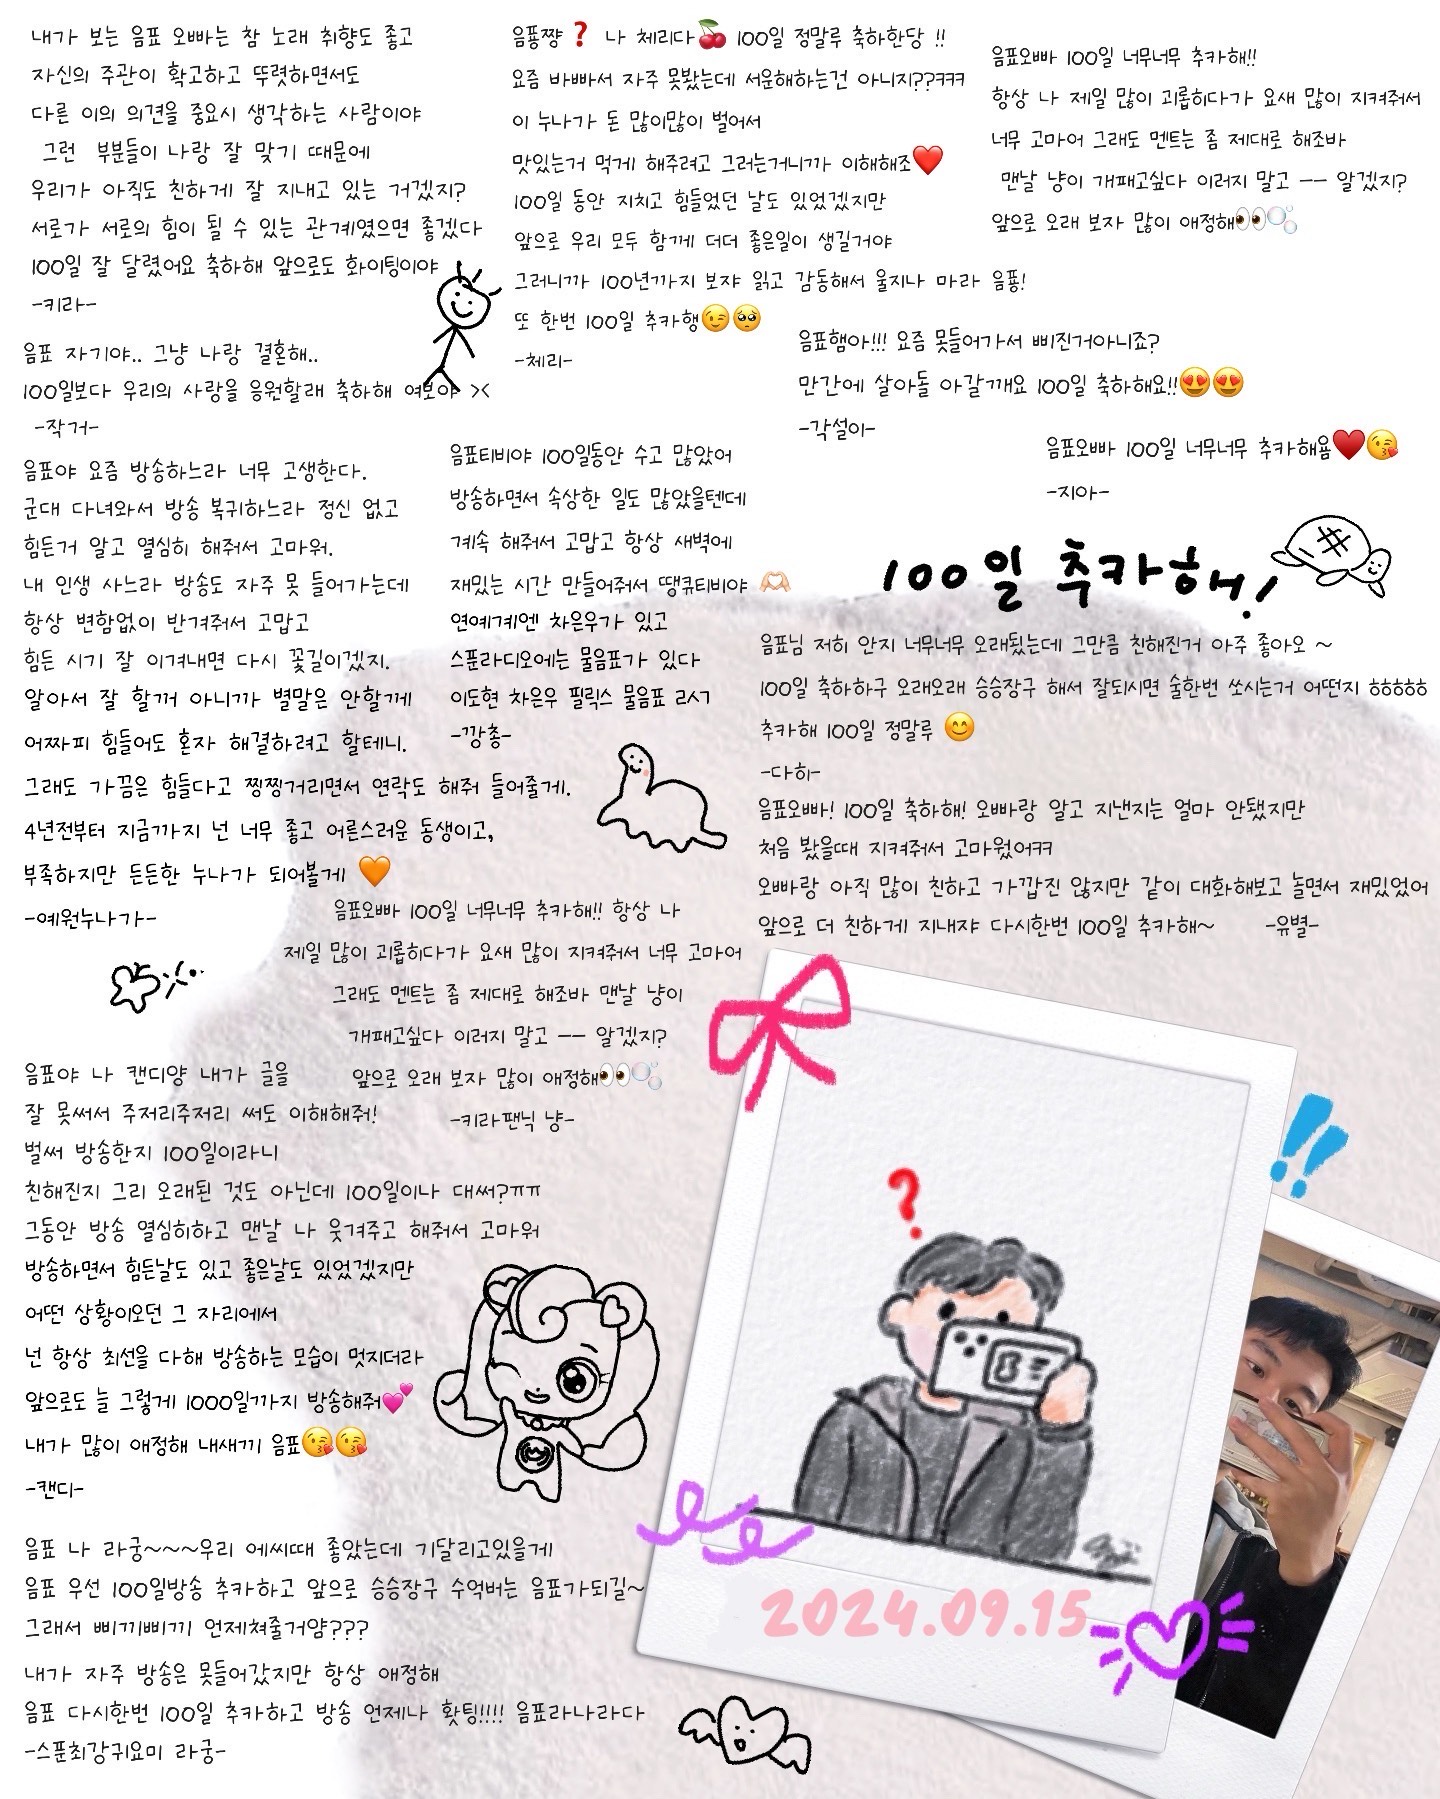 내가 보는 음표 오빠는 참 노래 취향도 좋고
자신의 주관이 확고하고 뚜렷하면서도
다른 이의 의견을 중요시 생각하는 사람이야
그런 부분들이 나랑 잘 맞기 때문에
우리가 아직도 친하게 잘 지내고 있는 거겠지?
서로가 서로의 힘이 될 수 있는 관계였으면 좋겠다
100일 잘 달렸어요 축하해 앞으로도 화이팅이야
-키라-
음표 자기야.. 그냥 나랑 결혼해..
100일보다 우리의 사랑을 응원할래 축하해 여보야 ><
-작거-
음표야 요즘 방송하느라 너무 고생한다.
군대 다녀와서 방송 복귀하느라 정신 없고
힘든거 알고 열심히 해줘서 고마워.
내 인생 사느라 방송도 자주 못 들어가는데
항상 변함없이 반겨줘서 고맙고
힘든 시기 잘 이겨내면 다시 꽃길이겠지.
알아서 잘 할꺼 아니까 별말은 안할게
어짜피 힘들어도 혼자 해결하려고 할테니.
그래도 가끔은 힘들다고 찡찡거리면서 연락도 해줘 들어줄게.
4년전부터 지금까지 넌 너무 좋고 어른스러운 동생이고,
부족하지만 든든한 누나가 되어볼게 🧡
-예원누나가-
음푱쨩❓ 나 체리다🍒 100일 정말루 축하한당 !!
요즘 바빠서 자주 못봤는데 서운해하는건 아니지??ㅋㅋㅋ
이 누나가 돈 많이많이 벌어서
맛있는거 먹게 해주려고 그러는거니까 이해해조❤️
100일 동안 지치고 힘들었던 날도 있었겠지만
앞으로 우리 모두 함께 더더 좋은일이 생길거야
그러니까 100년까지 보쟈 읽고 감동해서 울지나 마라 음푱!
또 한번 100일 추카행😉🥺
-체리-
음표오빠 100일 너무너무 추카해!!
항상 나 제일 많이 괴롭히다가 요새 많이 지켜줘서
너무 고마어 그래도 멘트는 좀 제대로 해조바
맨날 냥이 개패고싶다 이러지 말고 ㅡㅡ 알겠지?
앞으로 오래 보자 많이 애정해👀🫧
음표햄아!!! 요즘 못들어가서 삐진거아니죠?
만간에 살아돌 아갈깨요 100일 축하해요!!😍😍
-각설이-
음표오빠 100일 너무너무 추카해욤♥️😘
-지아-
음표티비야 100일동안 수고 많았어
방송하면서 속상한 일도 많았을텐데
계속 해줘서 고맙고 항상 새벽에
재밌는 시간 만들어줘서 땡큐티비야 🫶🏻
연예계엔 차은우가 있고
스푼라디오에는 물음표가 있다
이도현 차은우 필릭스 물음표 ㄹㅅㄱ
-깡총-
100일 추카해!
음표님 저희 안지 너무너무 오래됬는데 그만큼 친해진거 아주 좋아오 ~
100일 축하하구 오래오래 승승장구 해서 잘되시면 술한번 쏘시는거 어떤지 ㅎㅎㅎㅎㅎ
추카해 100일 정말루 😊
-다히-
음표오빠! 100일 축하해! 오빠랑 알고 지낸지는 얼마 안됐지만
처음 봤을때 지켜줘서 고마웠어ㅋㅋ
오빠랑 아직 많이 친하고 가깝진 않지만 같이 대화해보고 놀면서 재밌었어
앞으로 더 친하게 지내쟈 다시한번 100일 추카해~ -유별-
음표오빠 100일 너무너무 추카해!! 항상 나
제일 많이 괴롭히다가 요새 많이 지켜줘서 너무 고마어
그래도 멘트는 좀 제대로 해조바 맨날 냥이
개패고싶다 이러지 말고 ㅡㅡ 알겠지?
앞으로 오래 보자 많이 애정해👀🫧
-키라팬닉 냥-
음표야 나 캔디양 내가 글을
잘 못써서 주저리주저리 써도 이해해줘!
벌써 방송한지 100일이라니
친해진지 그리 오래된 것도 아닌데 100일이나 대써?ㅠㅠ
그동안 방송 열심히하고 맨날 나 웃겨주고 해줘서 고마워
방송하면서 힘든날도 있고 좋은날도 있었겠지만
어떤 상황이오던 그 자리에서
넌 항상 최선을 다해 방송하는 모습이 멋지더라
앞으로도 늘 그렇게 1000일까지 방송해줘💕
내가 많이 애정해 내새끼 음표😘😘
-캔디-
음표 나 라궁~~~우리 에씨때 좋았는데 기달리고있을게
음표 우선 100일방송 추카하고 앞으로 승승장구 수억버는 음표가되길~
그래서 삐끼삐끼 언제쳐줄거얌???
내가 자주 방송은 못들어갔지만 항상 애정해
음표 다시한번 100일 추카하고 방송 언제나 홧팅!!!! 음표라나라다
-스푼최강귀요미 라궁-
?
!!
2024.09.15